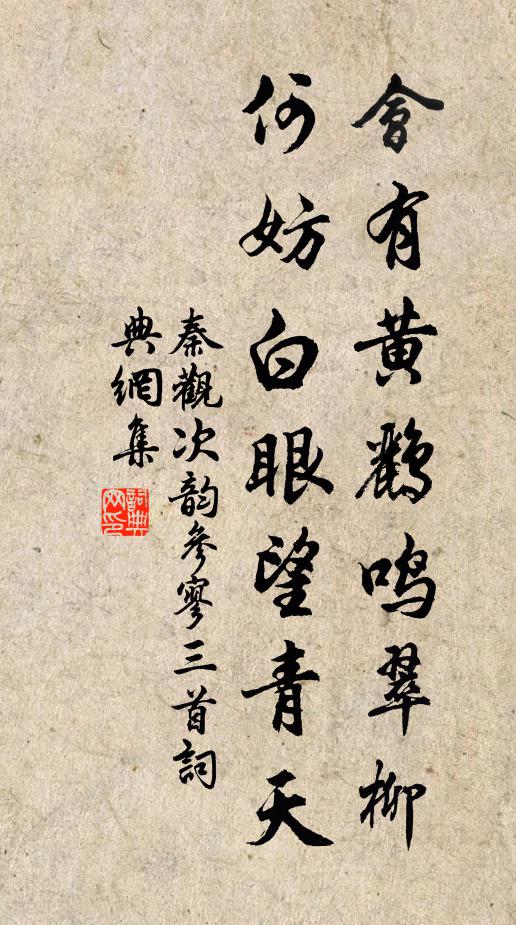 會有黃鸝鳴翠柳
何妨白眼望青天
秦觀次韵參寥三首詞
典網集
詞典網印